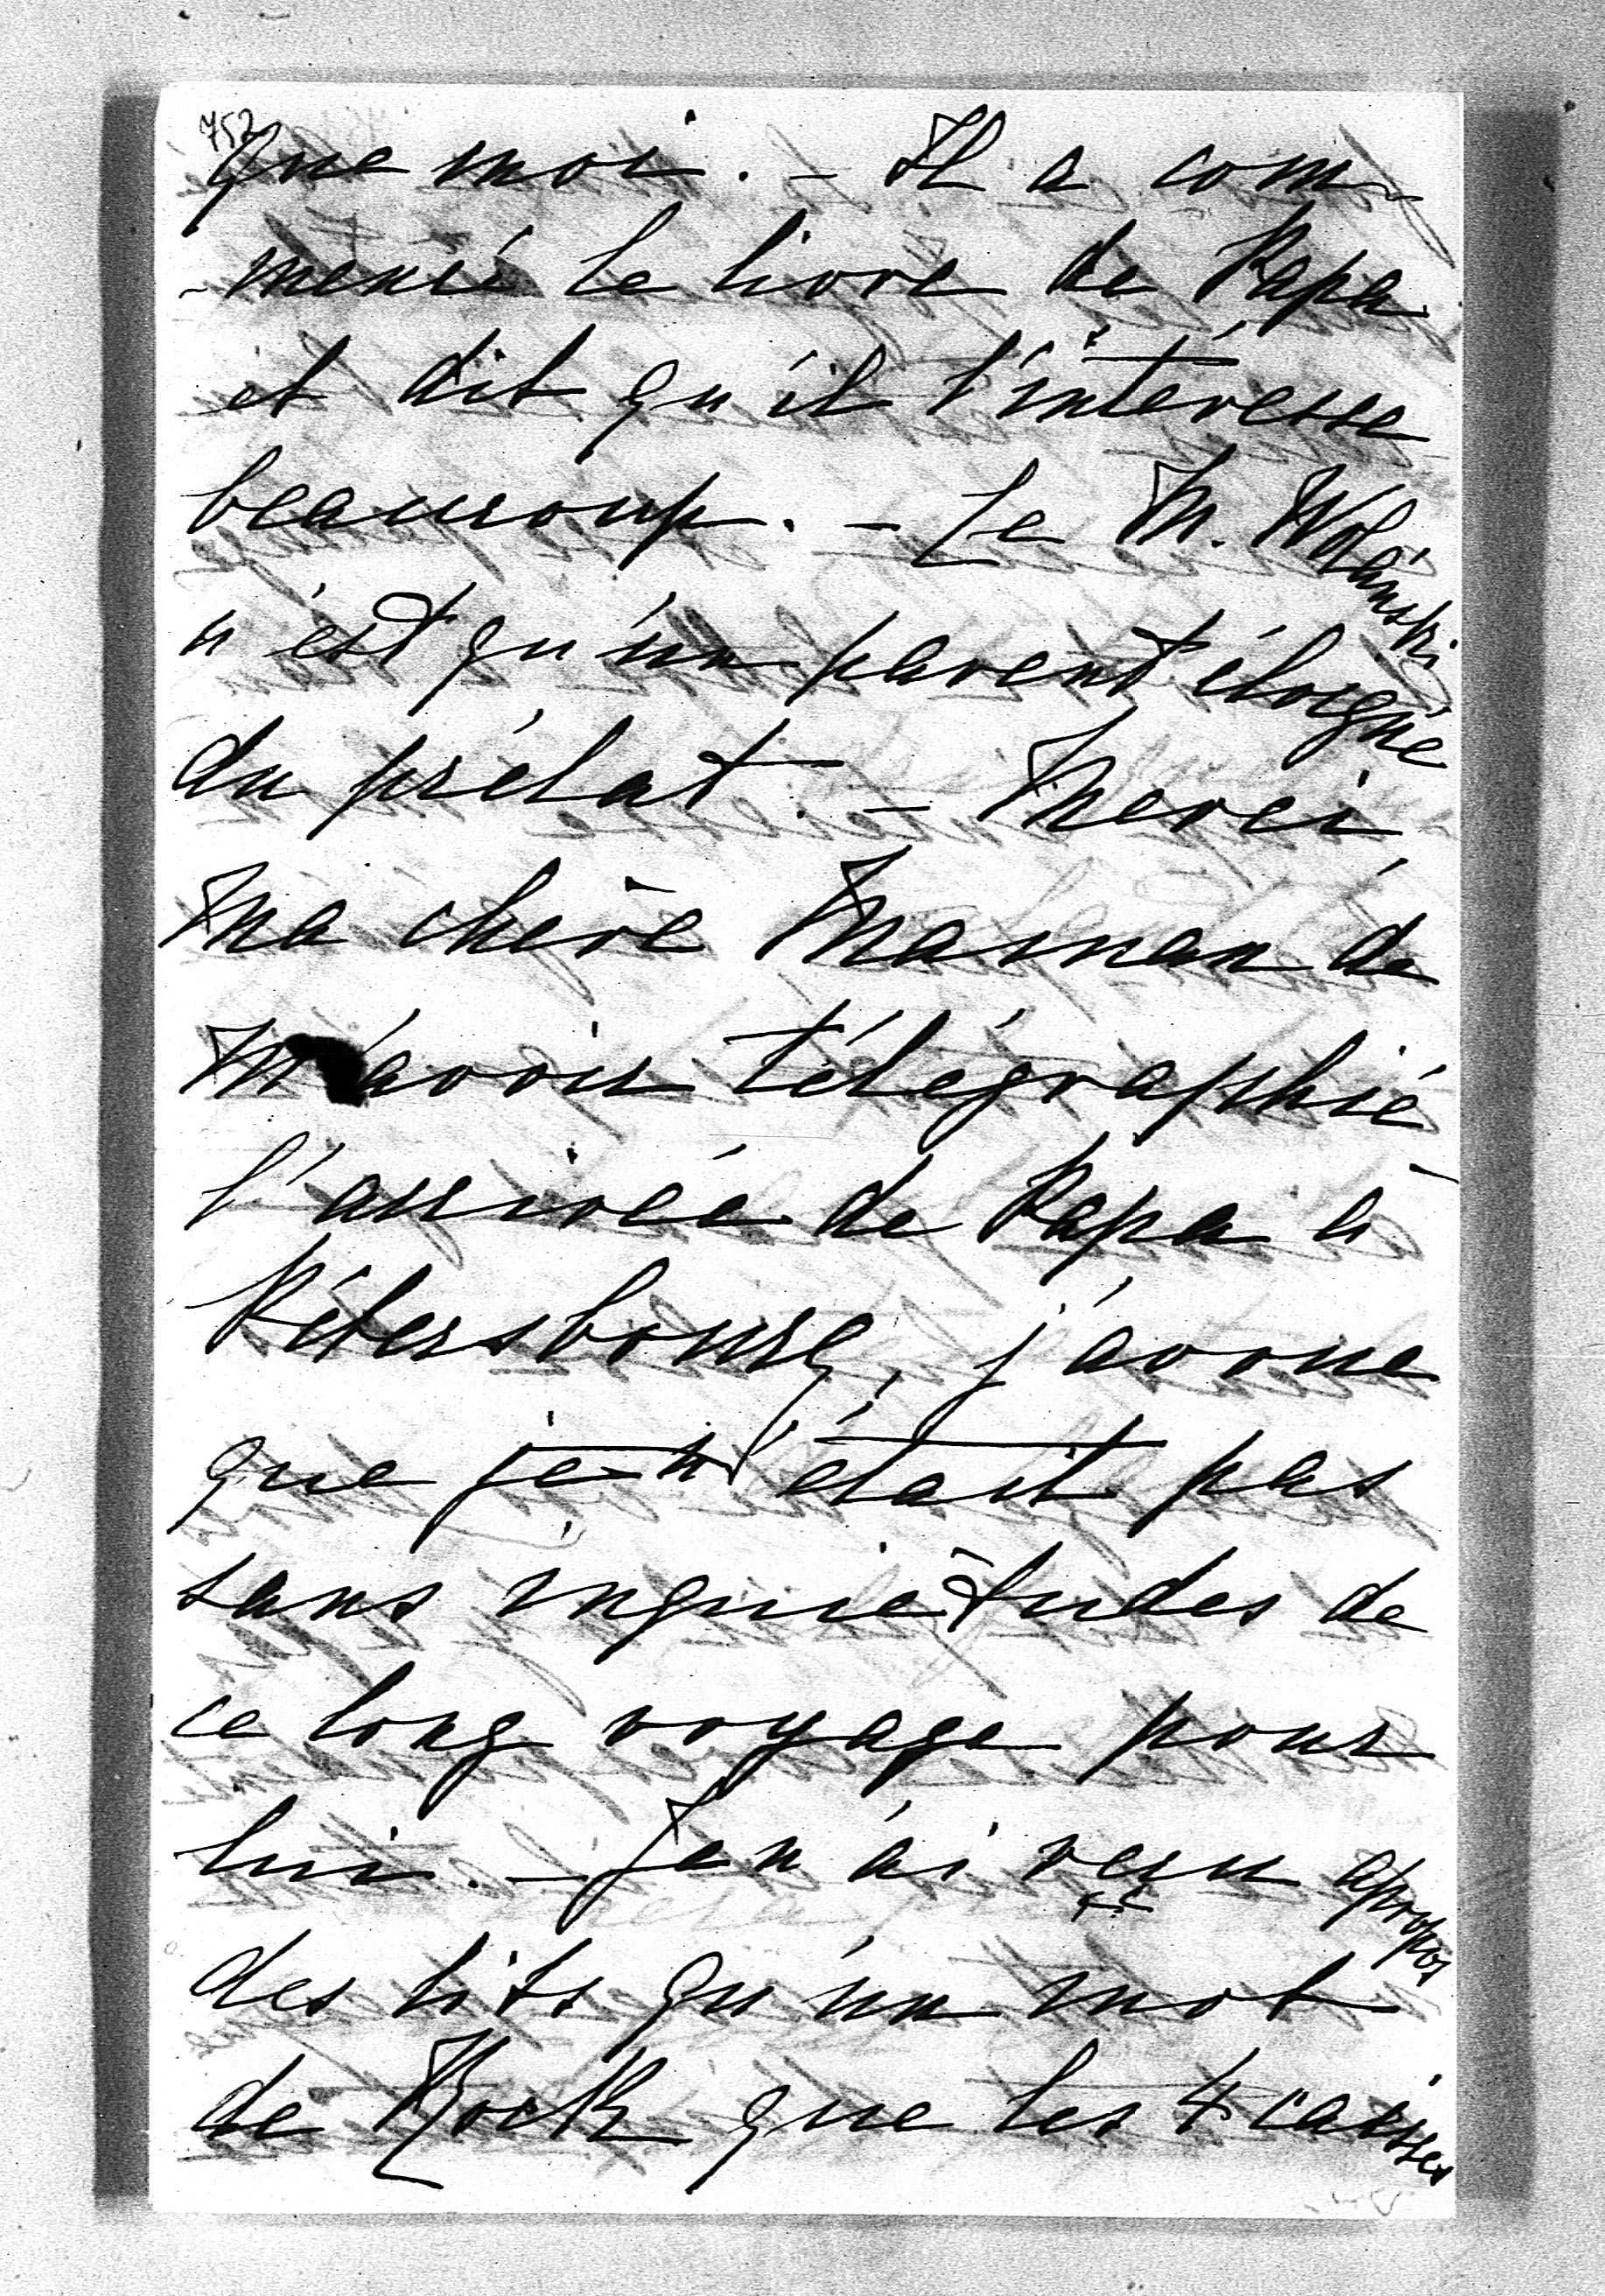 752
que moi. – Il a com-
-mencé le livre de Papa
et dit qu'il l'intéresse
beaucoup. – Le M. Wolanski
n'est qu'un parent éloigné
du prélat. – Merci
Ma chère Maman de
M'avoir télégraphié
l'arrivée de Papa à
Pétersbourg, j'avoue
que je n'était pas
sans inquiètudes de
ce long voyage pour
lui. – Je n'ai reçu apropos
des lits qu'un mot
de Kock que les 4 caisses